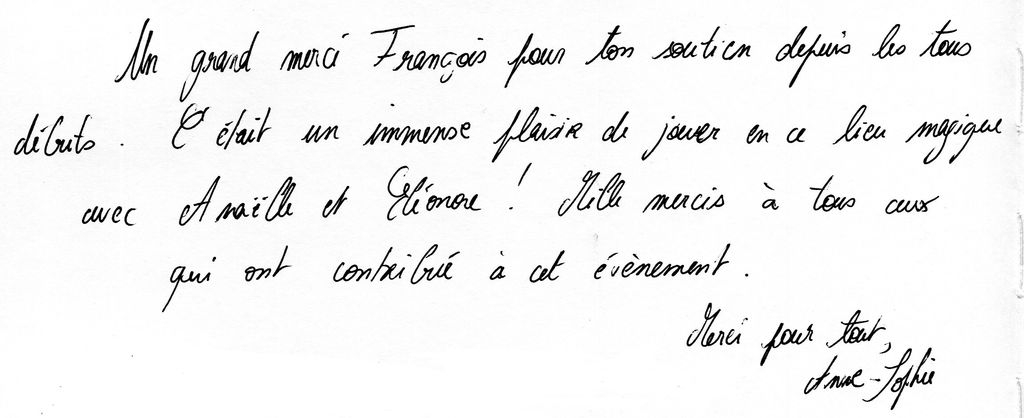 Un grand merci François pour ton soutien depuis les tous
débuts. C'était un immense plaisir de jouer en ce lieu magique
avec Anaëlle et Eléonore ! Mille mercis à tous ceux
qui ont contribué à cet évènement.
Merci pour tout,
Anne-Sophie